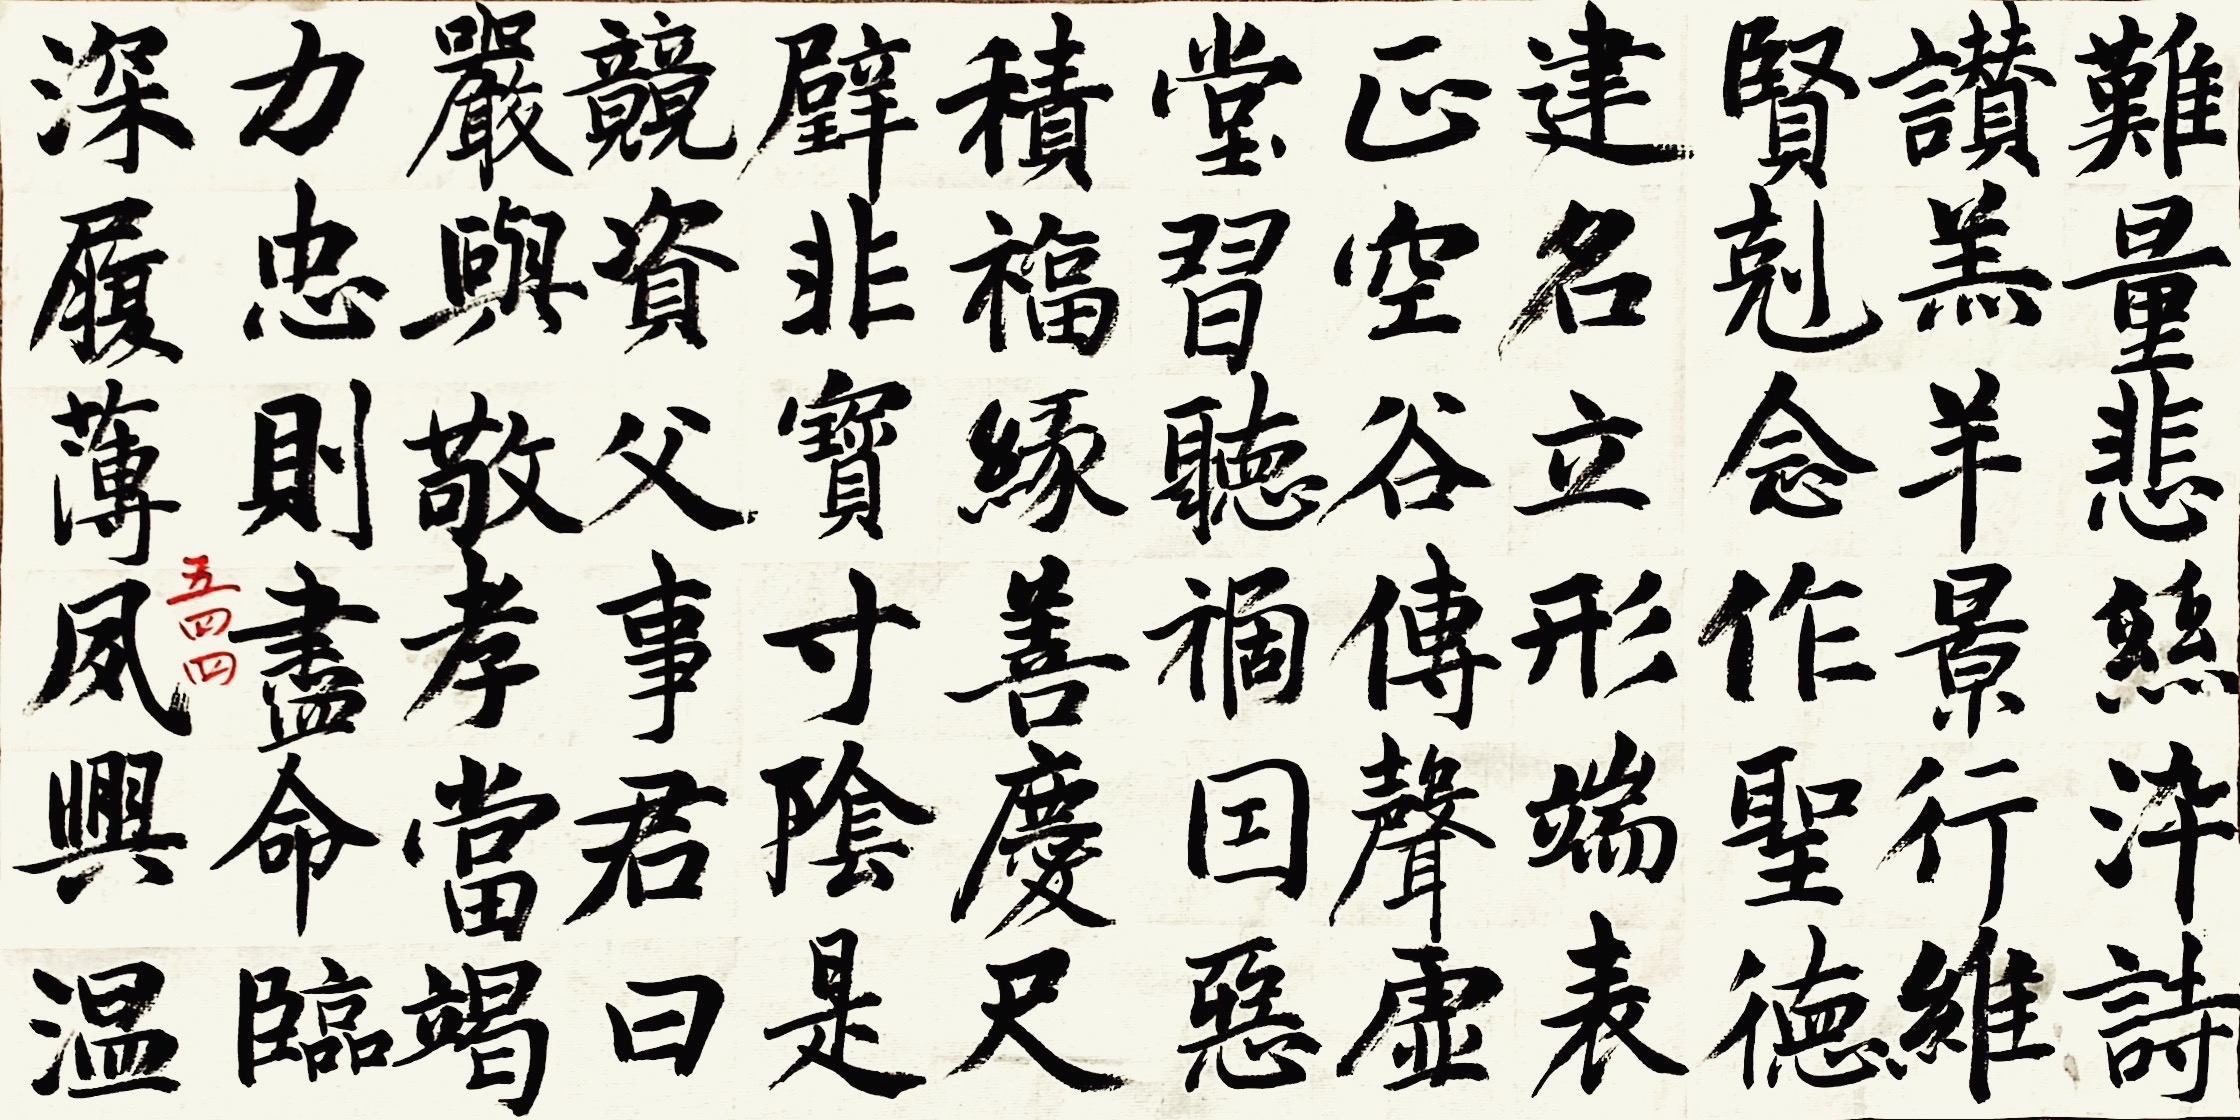 難量悲絲染詩
讃羔羊景行維
賢剋念作聖德
建名立形端表
正空谷傳聲虛
堂習聽禍因惡
積福緣善慶尺
璧非寶寸陰是
競資父事君曰
嚴與敬孝當竭
力忠則盡命臨
深履薄夙興温
五四四